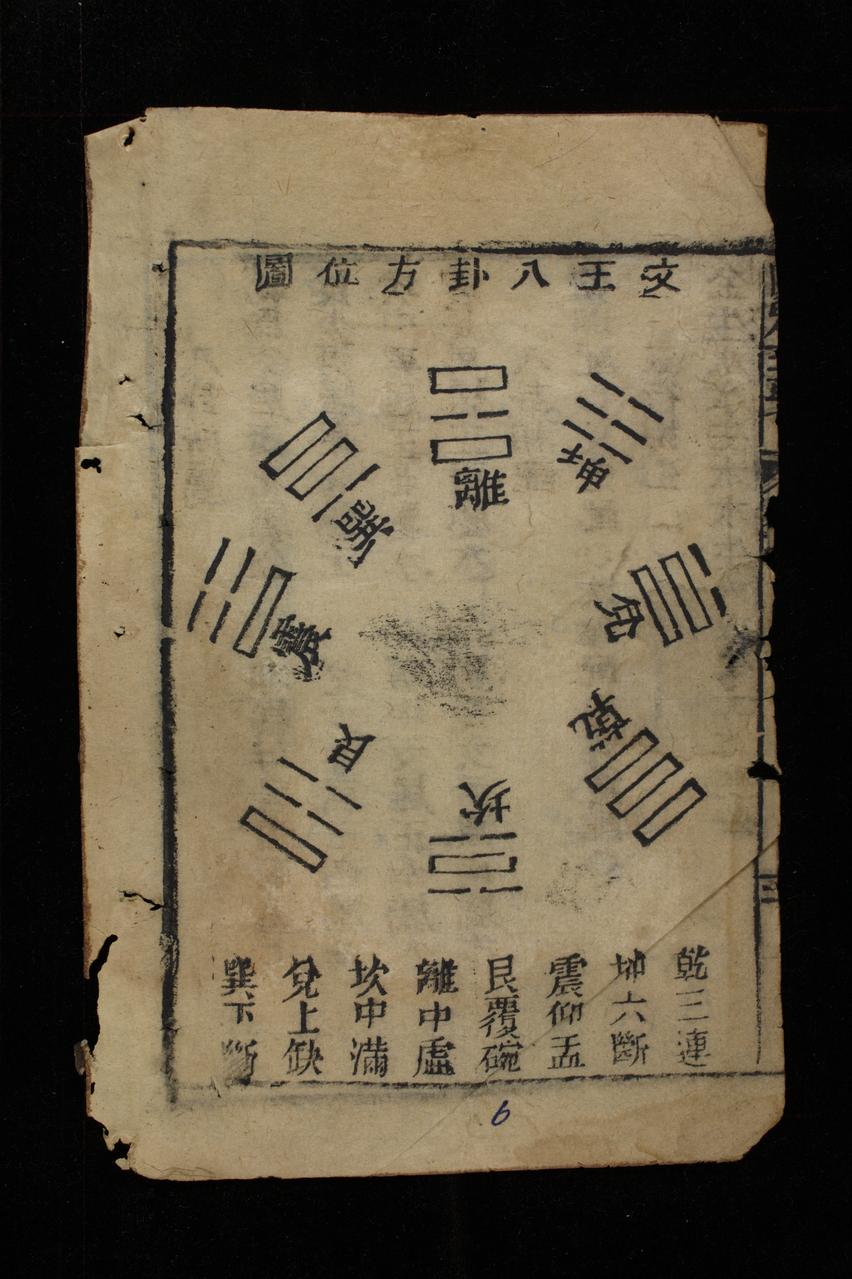 文王八卦方位圖
離
坤
兌
乾
坎
艮
震
巽
乾三連
坤六斷
震仰盂
艮覆碗
離中虛
坎中滿
兌上缺
巽下斷
三
6